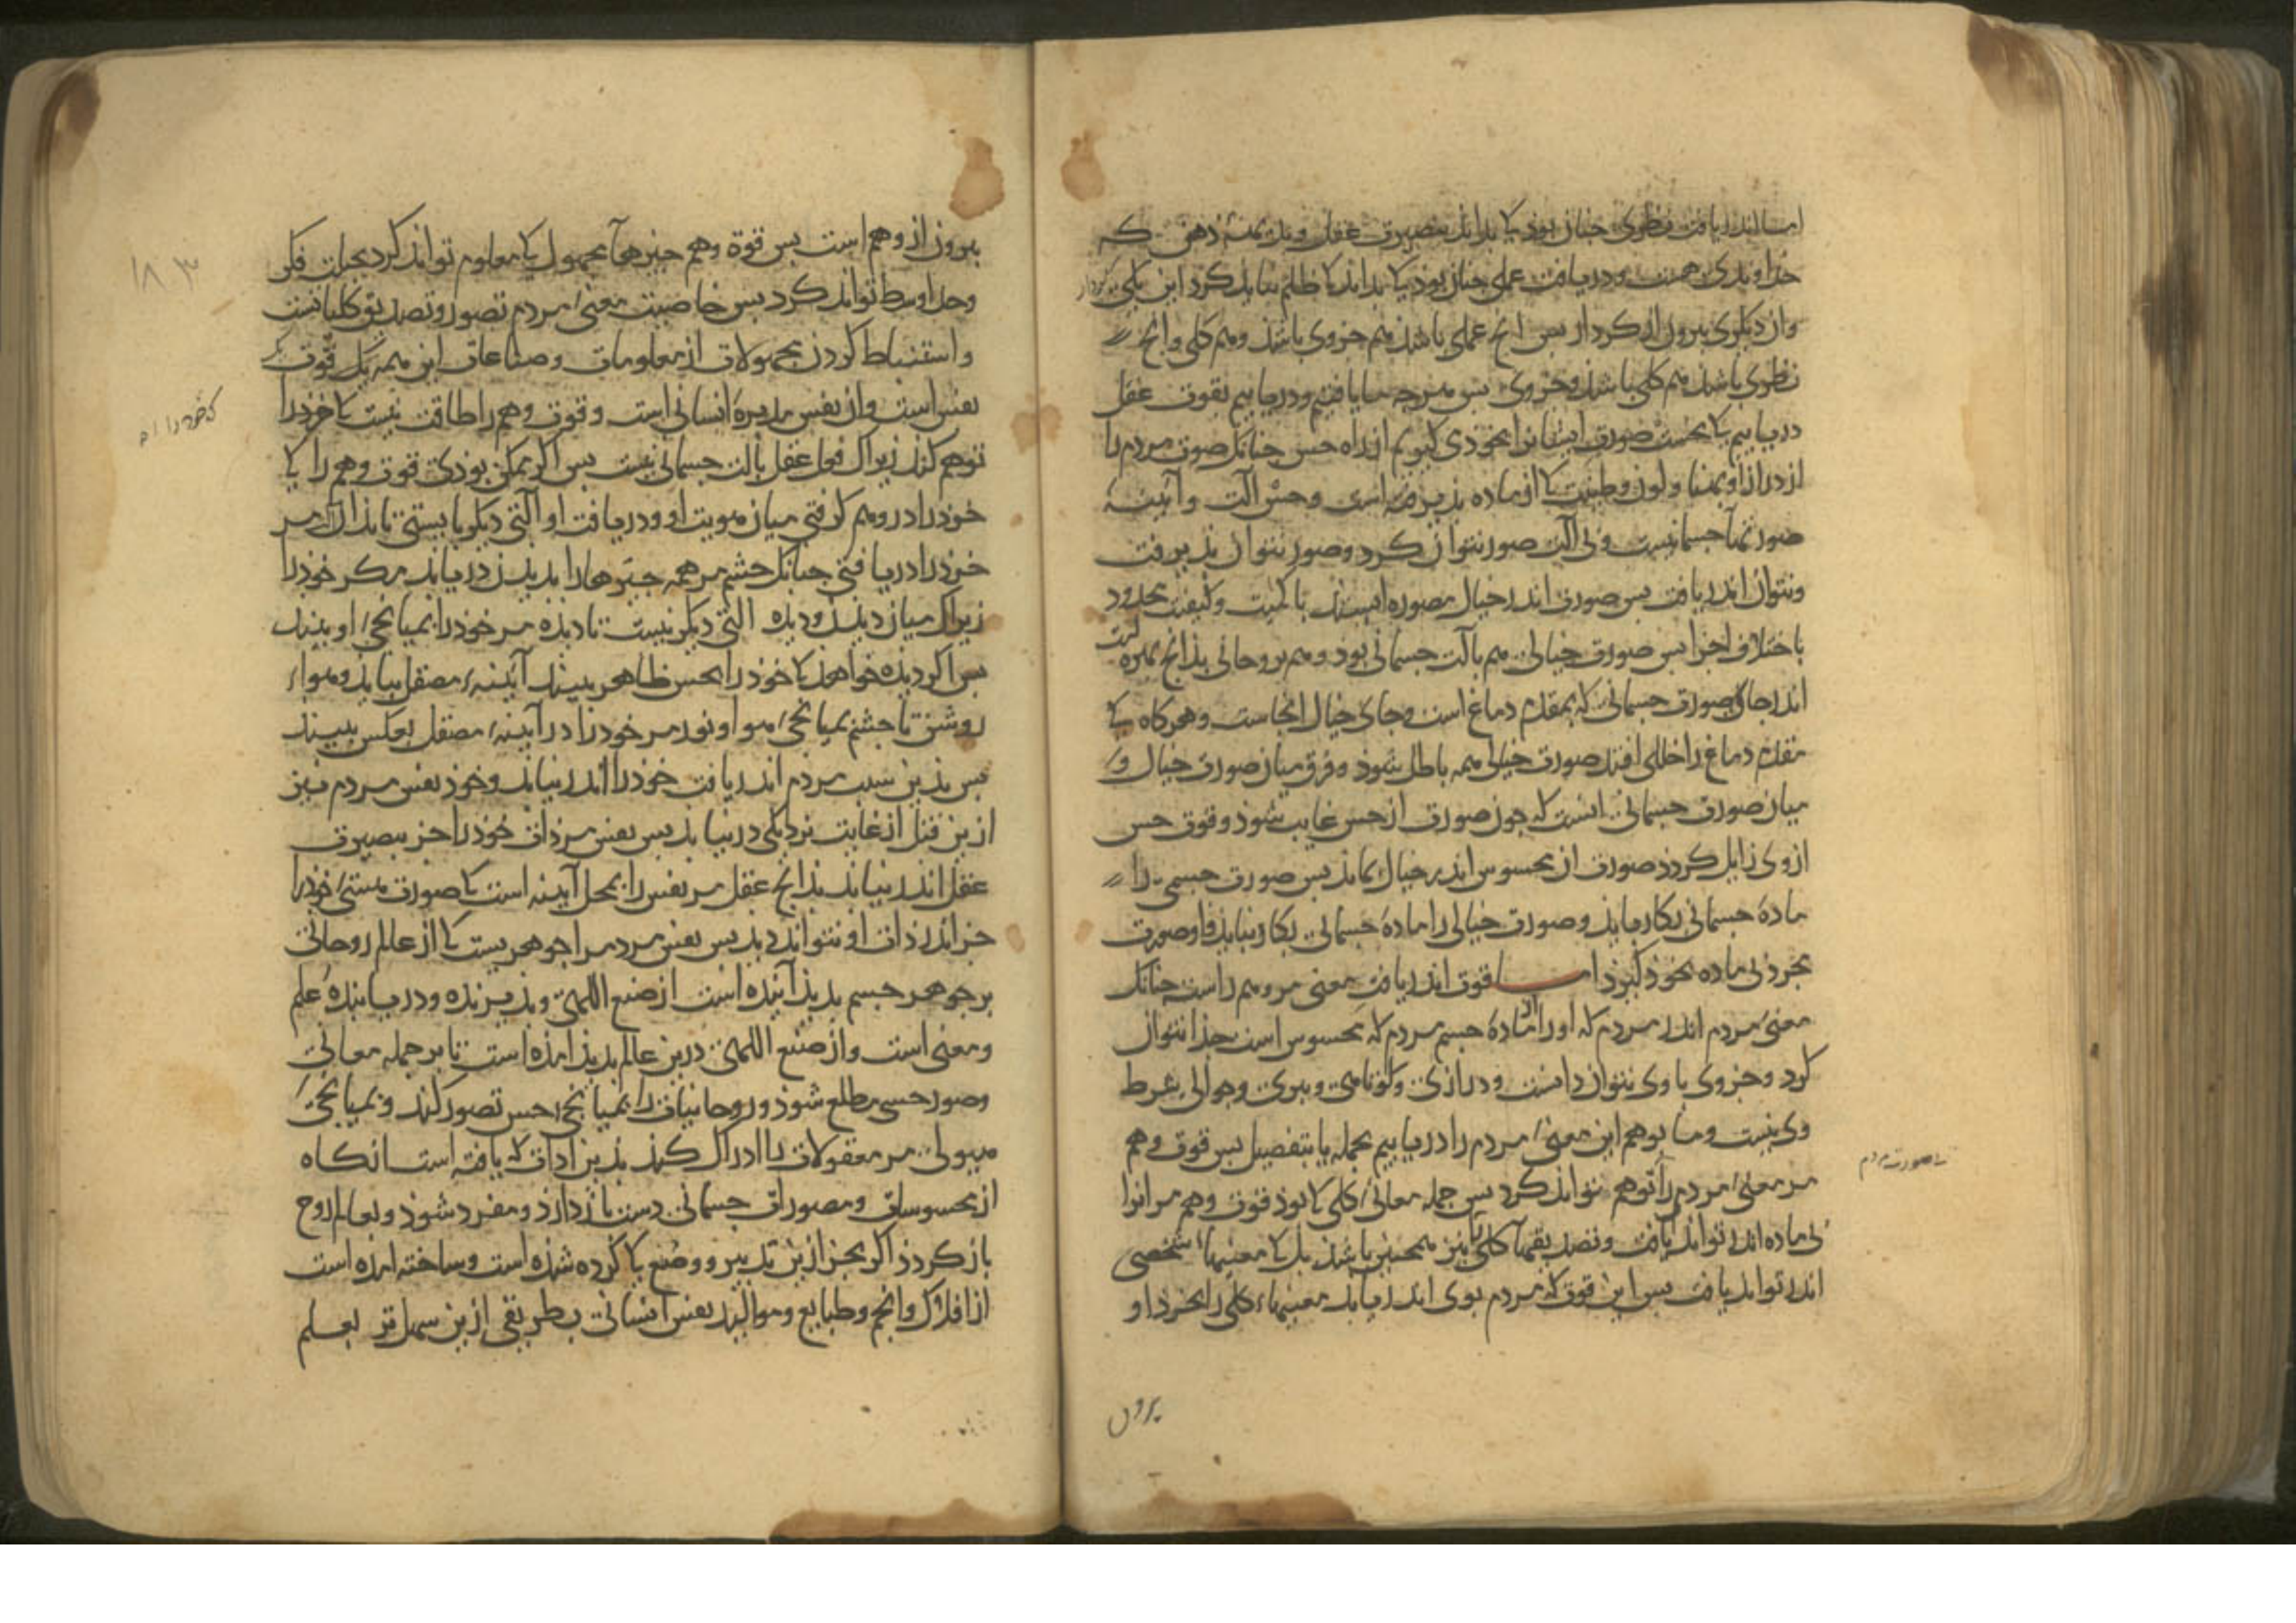 اما اندریافت نظری چنان بوذ کا بداند بصیرت عقل و بدیهٔ ذهن که
خداوندی هست و دریافت عملی چنان بوذ کا بداند کا ظلم نباید کرد این یکی کردار
واز دیکری بیرون از کردار بس انج عملی باشذ هم جزوی باشذ وهم کلی وانج
نظری باشذ هم کلی باشذ وجزوی بس هرجه ما یافتیم ودریابیم بقوت عقل
دریابیم کا نخست صورت ایشانرا بخوذی کیریم از راه حس جنانک صورت مردم را
از دراز او بهنا ولون وطینت کا از ماده بذیرفته است وحس الت وآیینهٔ
صورتهاء جسمانیست وبی آلت صور نتوان کرد وصور نتوان بذیرفت
ونتوان اندریافت بس صورت اندر خیال مصوره ایستد با کمیت وکیفیت محدود
باختلاف اجزا بس صورت خیالی هم بآلت جسمانی بود وهم بروحانی بذانج بهره
اندر جای صورت جسمانی که بمقدم دماغ است وجای خیال انجاست وهرکاه کا
مقدم دماغ را خللی افتد صورت خیالی همه باطل شوذ وفرق میان صورت خیال و
میان صورت جسمانی انست که جون صورت از حس غایب شوذ وقوت حس
ازوی زایل کردد صورت از محسوس اندر خیال بماند بس صورت جسمی را
مادهٔ جسمانی بکار باید وصورت خیالی را مادهٔ جسمانی بکار نیاید واو صورت
مجرد بی ماده بخوذ کیرد امــا قوت اندریافت معنی مر وهم راست جنانک
معنی مردم اندر مردم که اورا از مادهٔ جسم مردم که محسوس است جذا نتوان
کرد وجزوی با وی نتوان دانست ودرازی وکوتاهی وپیری وجوانی شرط
وی نیست وما بوهم این معنیٔ مردم را دریابیم بجمله یا بتفصیل بس قوت وهم
صورت مردم
مر معنیٔ مردم را توهم نتواند کرد بس جمله معانیٔ کلی کا بوذ قوت وهم مرانرا
بی ماده اندر تواند یافت وتصدیقهاء کلی نیز همجنین باشذ بل کا معنیهاء شخصی
اندر تواند یافت بس این قوت که مردم بوی اندریابد معنیهاء کلی را بخرد او
برون
بیرون از وهم است بس قوة وهم جیزهاء مجهول کا معلوم تواند کرد بحیلت فکر
وحد اوسط تواند کرد بس خاصیت معنیٔ مردم تصور وتصدیق کلیاتست
۱۸۳
واستنباط کردن مجهولات از معلومات وصناعات این همه یک قوت
نفس است واز نفس مدبرهٔ انسانی است وقوت وهم را طاقت نیست کا خوذ را
که خود را
توهم کند زیراک فعل عقل بآلت جسمانی نیست بس اکر ممکن بوذی قوت وهم را کا
خوذ را در وهم کرفتی میان هویت او ودریافت او آلتی دیکر بایستی تا بذان مر
خوذ را دریافتی جنانک جشم مر همه جیزها را بدیذن دریابد مکر خوذ را
زیراک میان دیذن ودیده التی دیکر نیست تا دیده مر خوذ را بمیانجیٔ او بیند
بس اکر دیده خواهد کا خوذ را بحس ظاهر بیند آیینهٔ مصقل بباید وهواء
روشن تا جشم بمیانجیٔ هوا ونور مر خوذ را در آیینهٔ مصقل بعکس ببیند
بس بذین سبب مردم اندریافت خوذ را اندر نیابد وخوذ نفس مردم نیز
ازین قبل از غایت نزدیکی در نیابذ بس نفس مر ذات خوذ را جز ببصیرت
عقل اندر نیابد بذانج عقل مر نفس را بمحل آیینه است کا صورت هستیٔ خوذ را
جز اندر ذات او نتواند دید بس نفس مردم را جوهریست کا از عالم روحانی
بر جوهر جسم بدیذ آینده است از صنع اللهی وبذیرنده ودریابندهٔ علم
ومعنی است واز صنع اللهی درین عالم بدیذ امذه است تا بر جمله معانی
وصور حسی مطلع شوذ وروحانیات را بمیانجیٔ حس تصور کند وبمیانجیٔ
هیولی مر معقولات را ادراک کند بذین ادات که یافته است انکاه
از محسوسات ومصورات جسمانی دست بازدارذ ومفرد شوذ وبعالم روح
باز کردذ اکر بجز ازین تدبیر و وضع کا کرده شذه است وساخته امذه است
از افلاک وانجم وطبایع وموالید نفس انسانی بطریقی ازین سهل تر بعلم